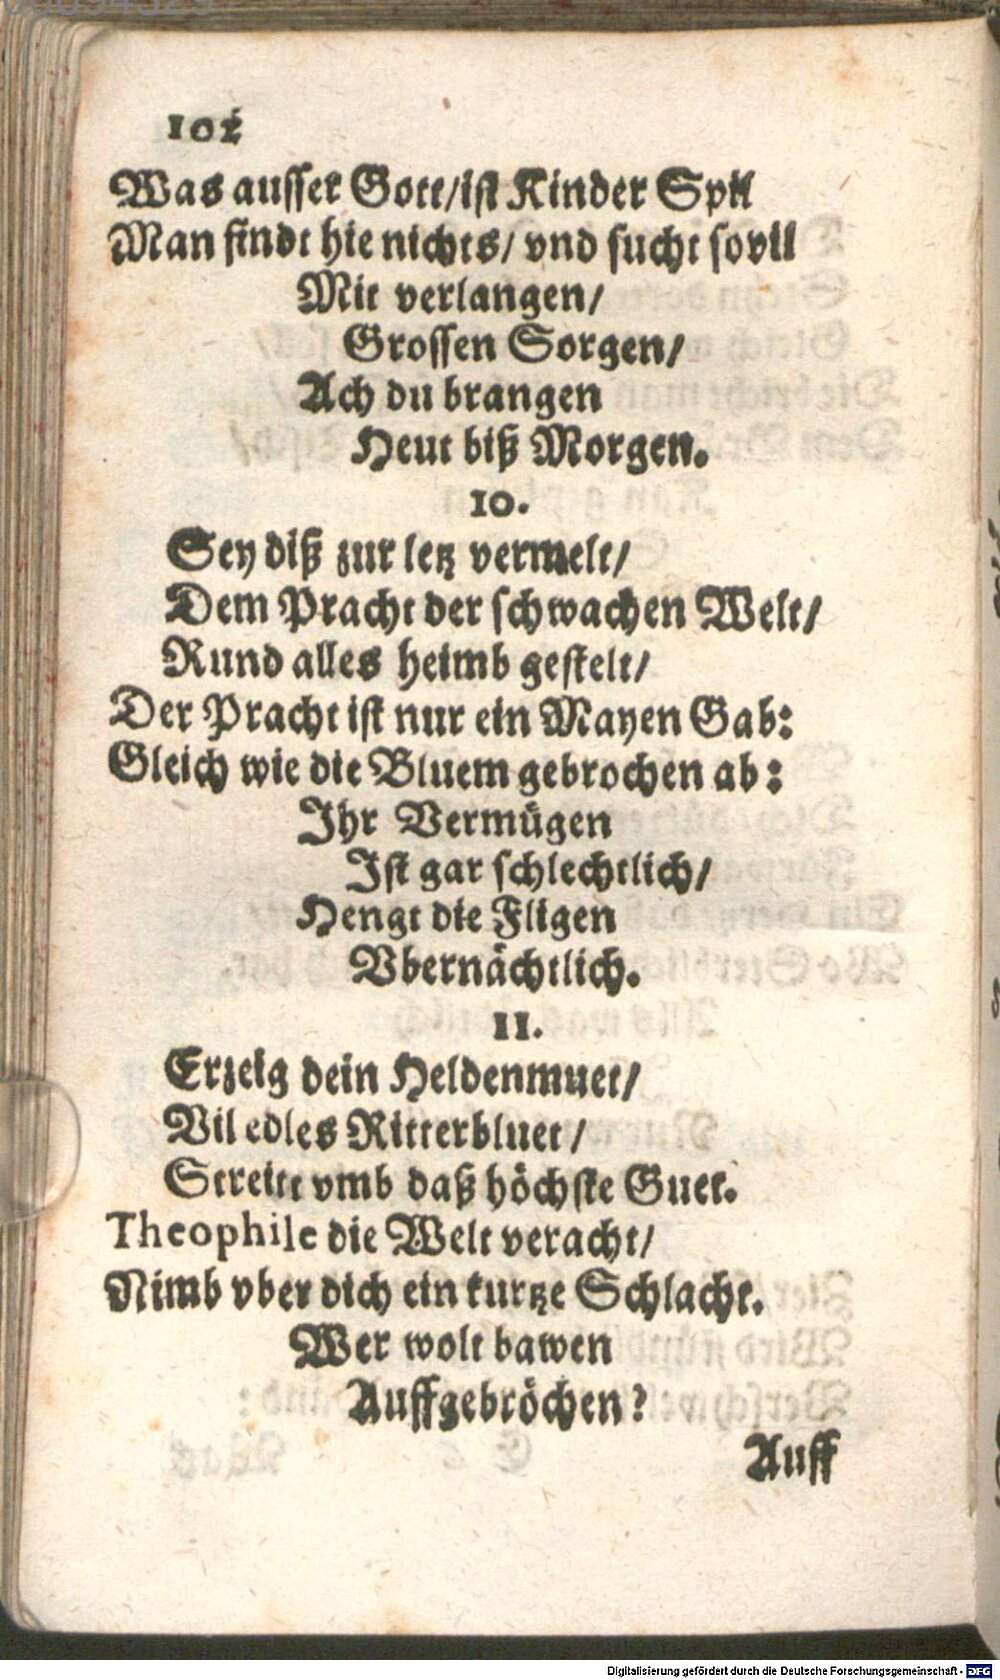 102
Was ausser Gott/ist Kinder Spil
Man findt hie nichts/ vnd sucht sovil
Mit verlangen/
Grossen Sorgen/
Ach du brangen
Heut biß Morgen.
10.
Sey diß zur letz vermelt/
Dem Pracht der schwachen Welt/
Rund alles heimb gestelt/
Der Pracht ist nur ein Mayen Gab:
Gleich wie die Bluem gebrochen ab:
Ihr Vermügen
Ist gar schlechtlich/
Hengt die Fligen
Vbernächtlich.
11.
Erzeig dein Heldenmuet/
Vil edles Ritterbluet/
Streitt vmb daß höchste Guet.
Theophile die Welt veracht/
Nimb vber dich ein kurtze Schlacht.
Wer wolt bawen
Auffgebröchen?
Auff
Digitalisierung gefördert durch die Deutsche Forschungsgemeinschaft - DFG